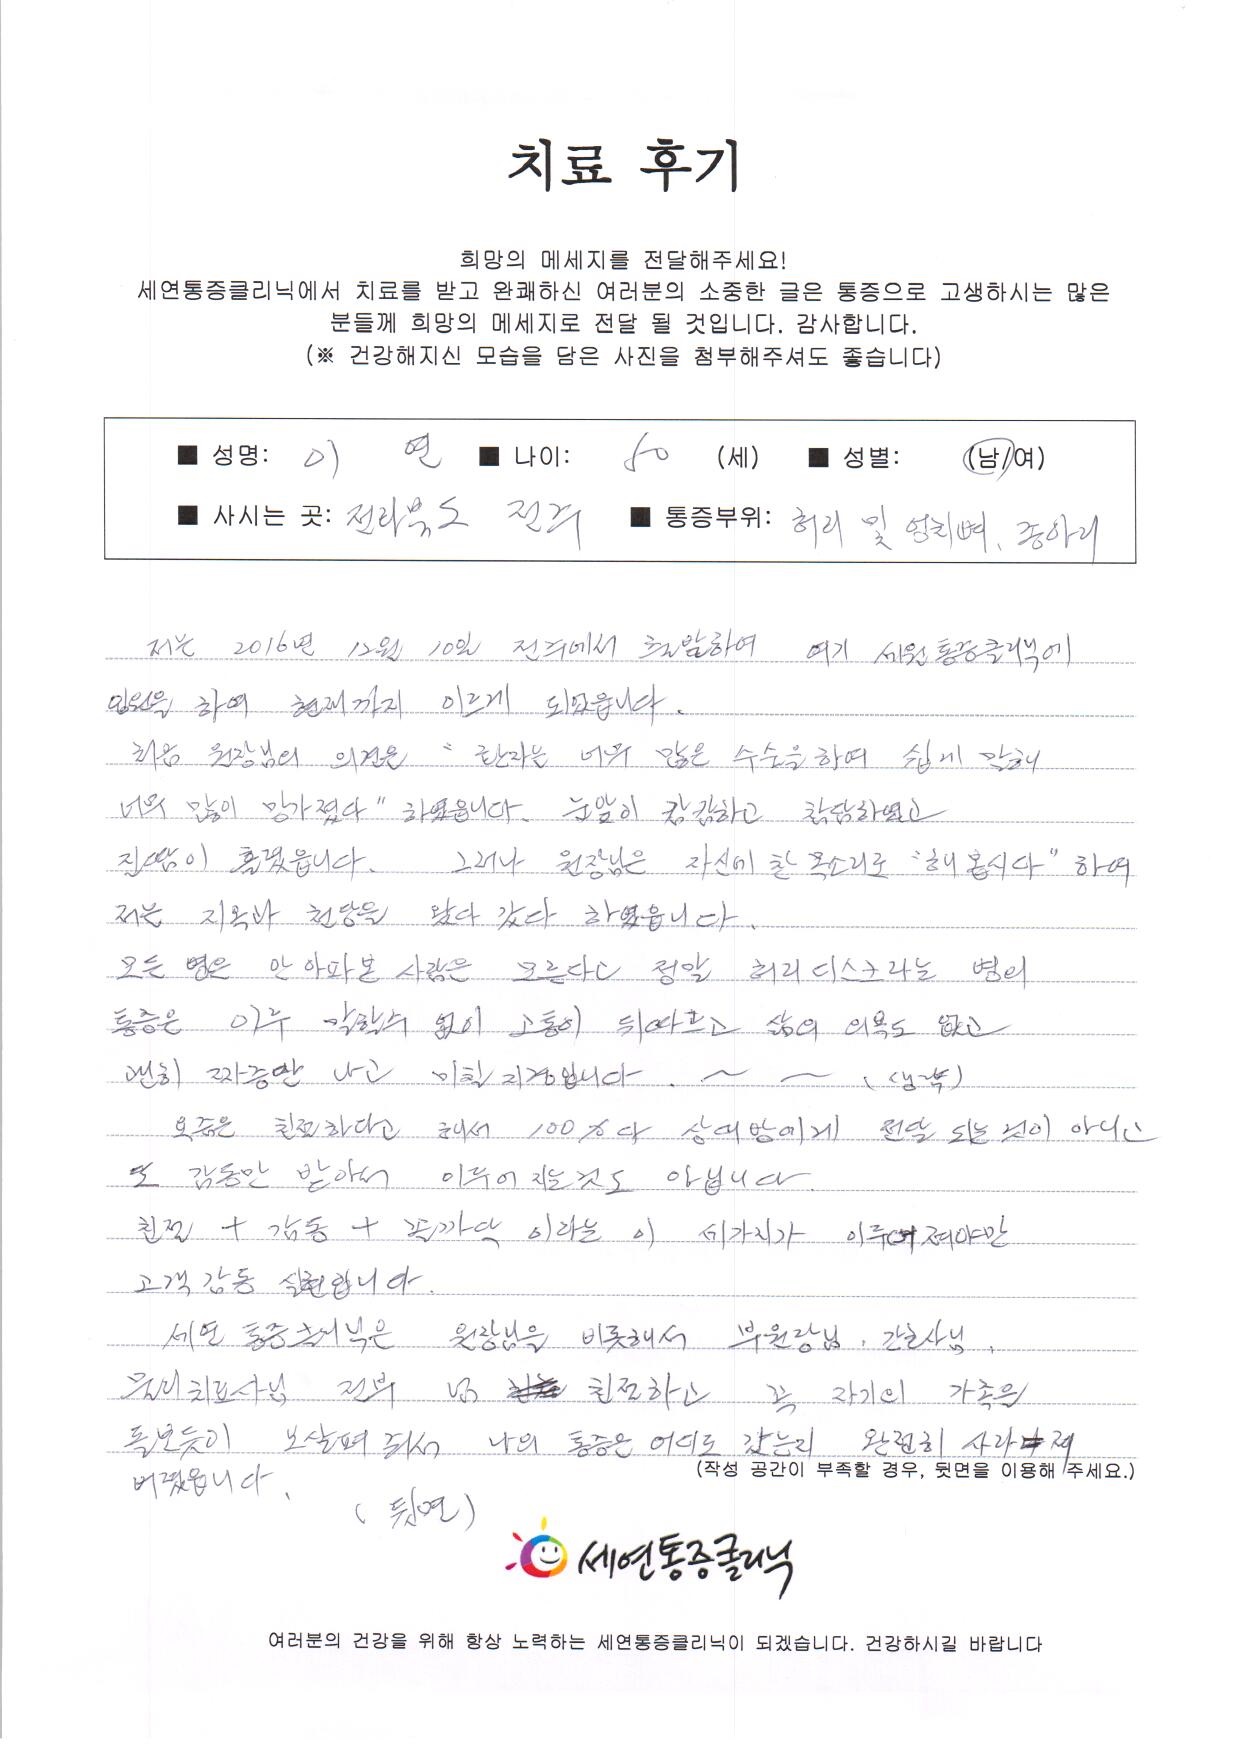 치료 후기
희망의 메세지를 전달해주세요!
세연통증클리닉에서 치료를 받고 완쾌하신 여러분의 소중한 글은 통증으로 고생하시는 많은
분들께 희망의 메세지로 전달 될 것입니다. 감사합니다.
(※ 건강해지신 모습을 담은 사진을 첨부해주셔도 좋습니다)
■ 성명: 이 연 ■ 나이: (세) ■ 성별: (남/여)
■ 사시는 곳: 전라북도 전주 ■ 통증부위: 허리 및 엉치뼈, 종아리
저는 2016년 12월 10일 전주에서 출발하여 여기 세원통증클리닉에
입원을 하여 현재까지 이르게 되었읍니다.
처음 원장님의 의견은 "환자는 너무 많은 수술을하여 쉽게 말해
너무 많이 망가졌다" 하였읍니다. 눈앞이 캄캄하고 착담하였고
진땀이 흘렸읍니다. 그러나 원장님은 자신에 찬 목소리로 "해 봅시다" 하여
저는 지옥과 천당을 왔다 갔다 하였읍니다.
모든 병은 안 아파본 사람은 모른다고 정말 허리디스크라는 병의
통증은 이루 말할수 없이 고통이 뒤따르고 삶의 의욕도 없고
괜히 짜증만 나고 미칠지경입니다. ~ ~ (생략)
요즘은 친절하다고 해서 100%다 상대방에게 전달 되는것이 아니고
또 감동만 받아서 이루어 지는것도 아닙니다.
친절 + 감동 + 꼭까닥 이라는 이 세가지가 이루어져야만
고객감동 실현됩니다.
세연 통증크리닉은 원장님을 비롯해서 부원장님, 간호사님,
물리치료사님 전부 넘 친절하고 꼭 자기의 가족을
돌보듯이 보살펴 줘서 나의 통증은 어디로 갔는지 완전히 사라져
버렸읍니다.
(작성 공간이 부족할 경우, 뒷면을 이용해 주세요.)
(뒷면)
세연통증클리닉
여러분의 건강을 위해 항상 노력하는 세연통증클리닉이 되겠습니다. 건강하시길 바랍니다